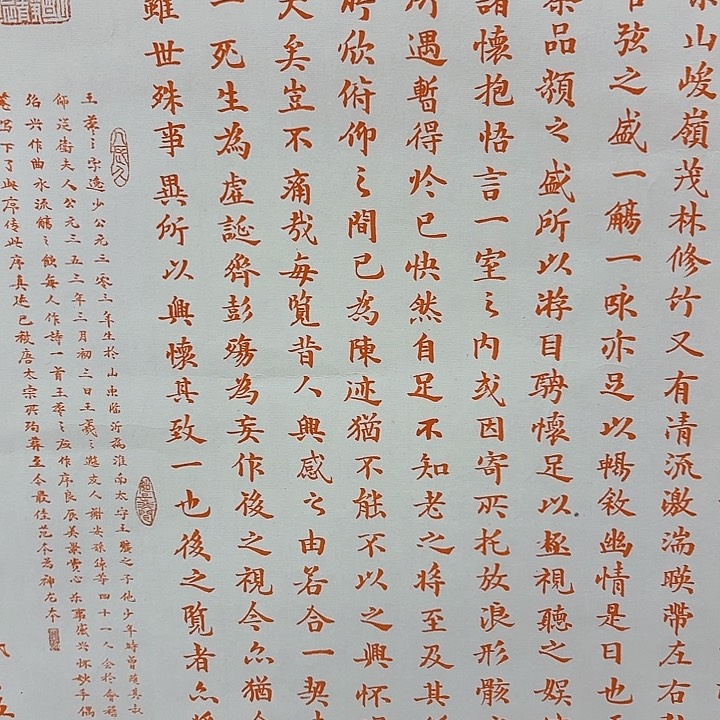 山峻嶺茂林修竹又有清流激湍暎帶左右
弦之盛一觴一咏亦足以暢敘幽情是日也
品類之盛所以遊目騁懷足以極視聽之娛
諸懷抱悟言一室之内或因寄所托放浪形骸
所遇暫得於已快然自足不知老之將至及其所
欣俯仰之間已為陳迹猶不能不以之興怀
大矣豈不痛哉每覽昔人興感之由若合一契
一死生為虛誕齊彭殤為妄作後之視今亦猶今
雖世殊事異所以興懷其致一也後之覽者亦將
王羲之字逸少公元三零三年生於山東臨沂為淮南太守王曠之子他少年時曾隨其叔
師從衛夫人公元三五三年三月初三日王羲之邀友人謝安孫綽等四十一人会於會稽
兴作曲水流觴之飲每人作詩一首王羲之应作序良辰美景賞心乐事盛兴怀妙手偶
写下了此序传此序真迹已被唐太宗所殉葬至今最佳范本為神龙本